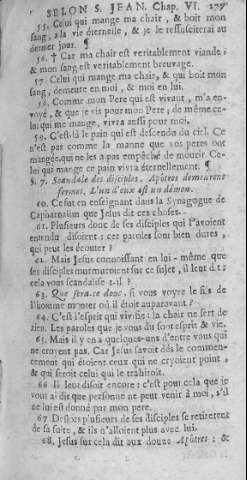 SELON S. JEAN. Chap. VI. 279
55. Celui qui mange ma chair, & boit mon
sang, a la vie éternelle, & je le ressusciterai au
dernier jour. ¶
56. † Car ma chair est veritablement viande;
& mon sang est veritablement breuvage.
57. Celui qui mange ma chair, & qui boit mon
sang, demeure en moi, & moi en lui.
58. Comme mon Pere qui est vivant, m'a en-
voyé, & que je vis pour mon Pere; de même ce-
lui qui me mange, vivra aussi pour moi.
59. C'est-là le pain qui est descendu du ciel. Ce
n'est pas comme la manne que vos peres ont
mangée, qui ne les a pas empêché de mourir. Ce-
lui qui mange ce pain vivra éternellement. ¶
§. 7. Scandale des disciples. Apôtres demeurent
fermes. L'un d'eux est un démon.
60. Ce fut en enseignant dans la Synagogue de
Capharnaüm que Jesus dit ces choses.
61. Plusieurs donc de ses disciples qui l'avoient
entendu disoient: ces paroles sont bien dures,
qui peut les écouter?
62. Mais Jesus connoissant en lui-même, que
ses disciples murmuroient sur ce sujet, il leur dit:
cela vous scandalise-t-il?
63. Que sera-ce donc, si vous voyez le fils de
l'homme monter où il étoit auparavant?
64. C'est l'esprit qui vivifie: la chair ne sert de
rien. Les paroles que je vous dis sont esprit & vie.
65. Mais il y en a quelques-uns d'entre vous qui
ne croyent pas. Car Jesus savoit dès le commen-
cement qui étoient ceux qui ne croyoient point,
& qui seroit celui qui le trahiroit.
66 Il leur disoit encore: c'est pour cela que je
vous ai dit que personne ne peut venir à moi, s'il
ne lui est donné par mon pere.
67 Dès lors plusieurs de ses disciples se retirerent
de sa suite, & ils n'alloient plus avec lui.
68. Jesus sur cela dit aux douze Apôtres: &